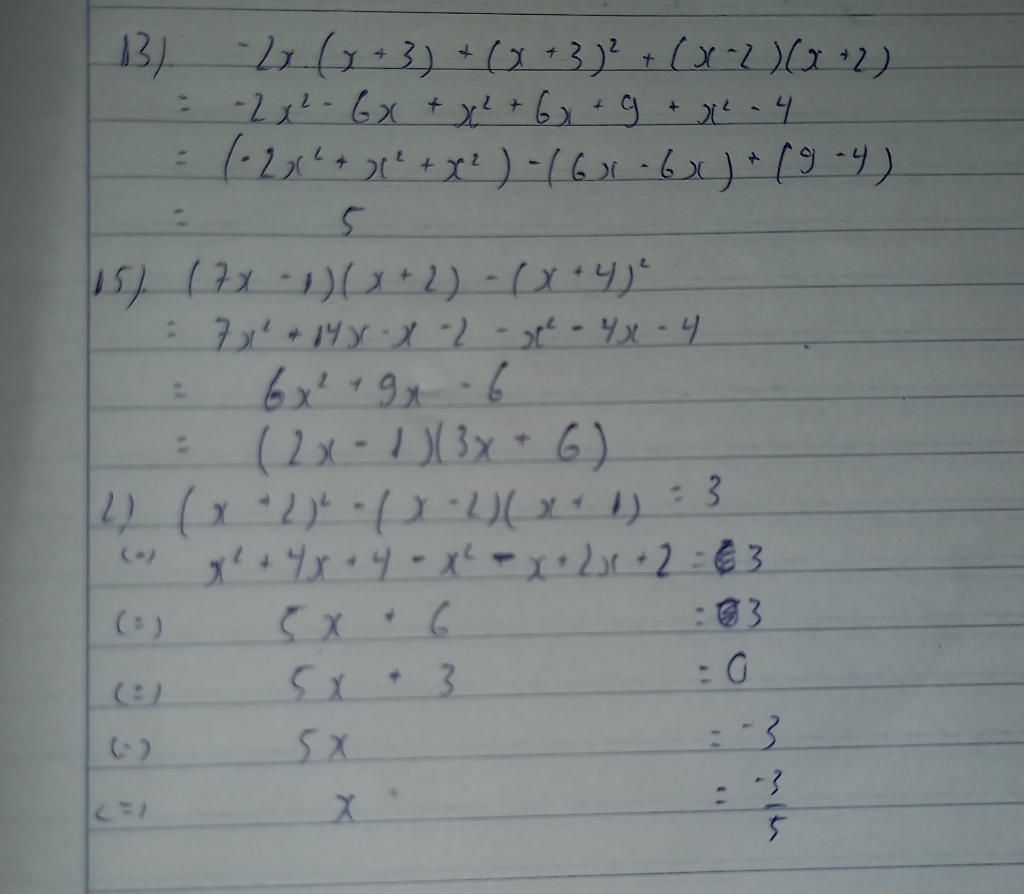 13) -2x(x+3) + (x+3)² + (x-2)(x+2)
= -2x² - 6x + x² + 6x + 9 + x² - 4
= (-2x² + x² + x²) - (6x - 6x) + (9 - 4)
= 5
15). (7x - 1)(x+2) - (x+4)²
= 7x² + 14x - x - 2 - x² - 4x - 4
= 6x² + 9x - 6
= (2x - 1)(3x + 6)
2) (x + 2)² - (x - 2)(x + 1) = 3
(=) x² + 4x + 4 - x² - x + 2x + 2 = 3
(=) 5x + 6 = 3
(=) 5x + 3 = 0
(=) 5x = -3
(=) x = -3/5